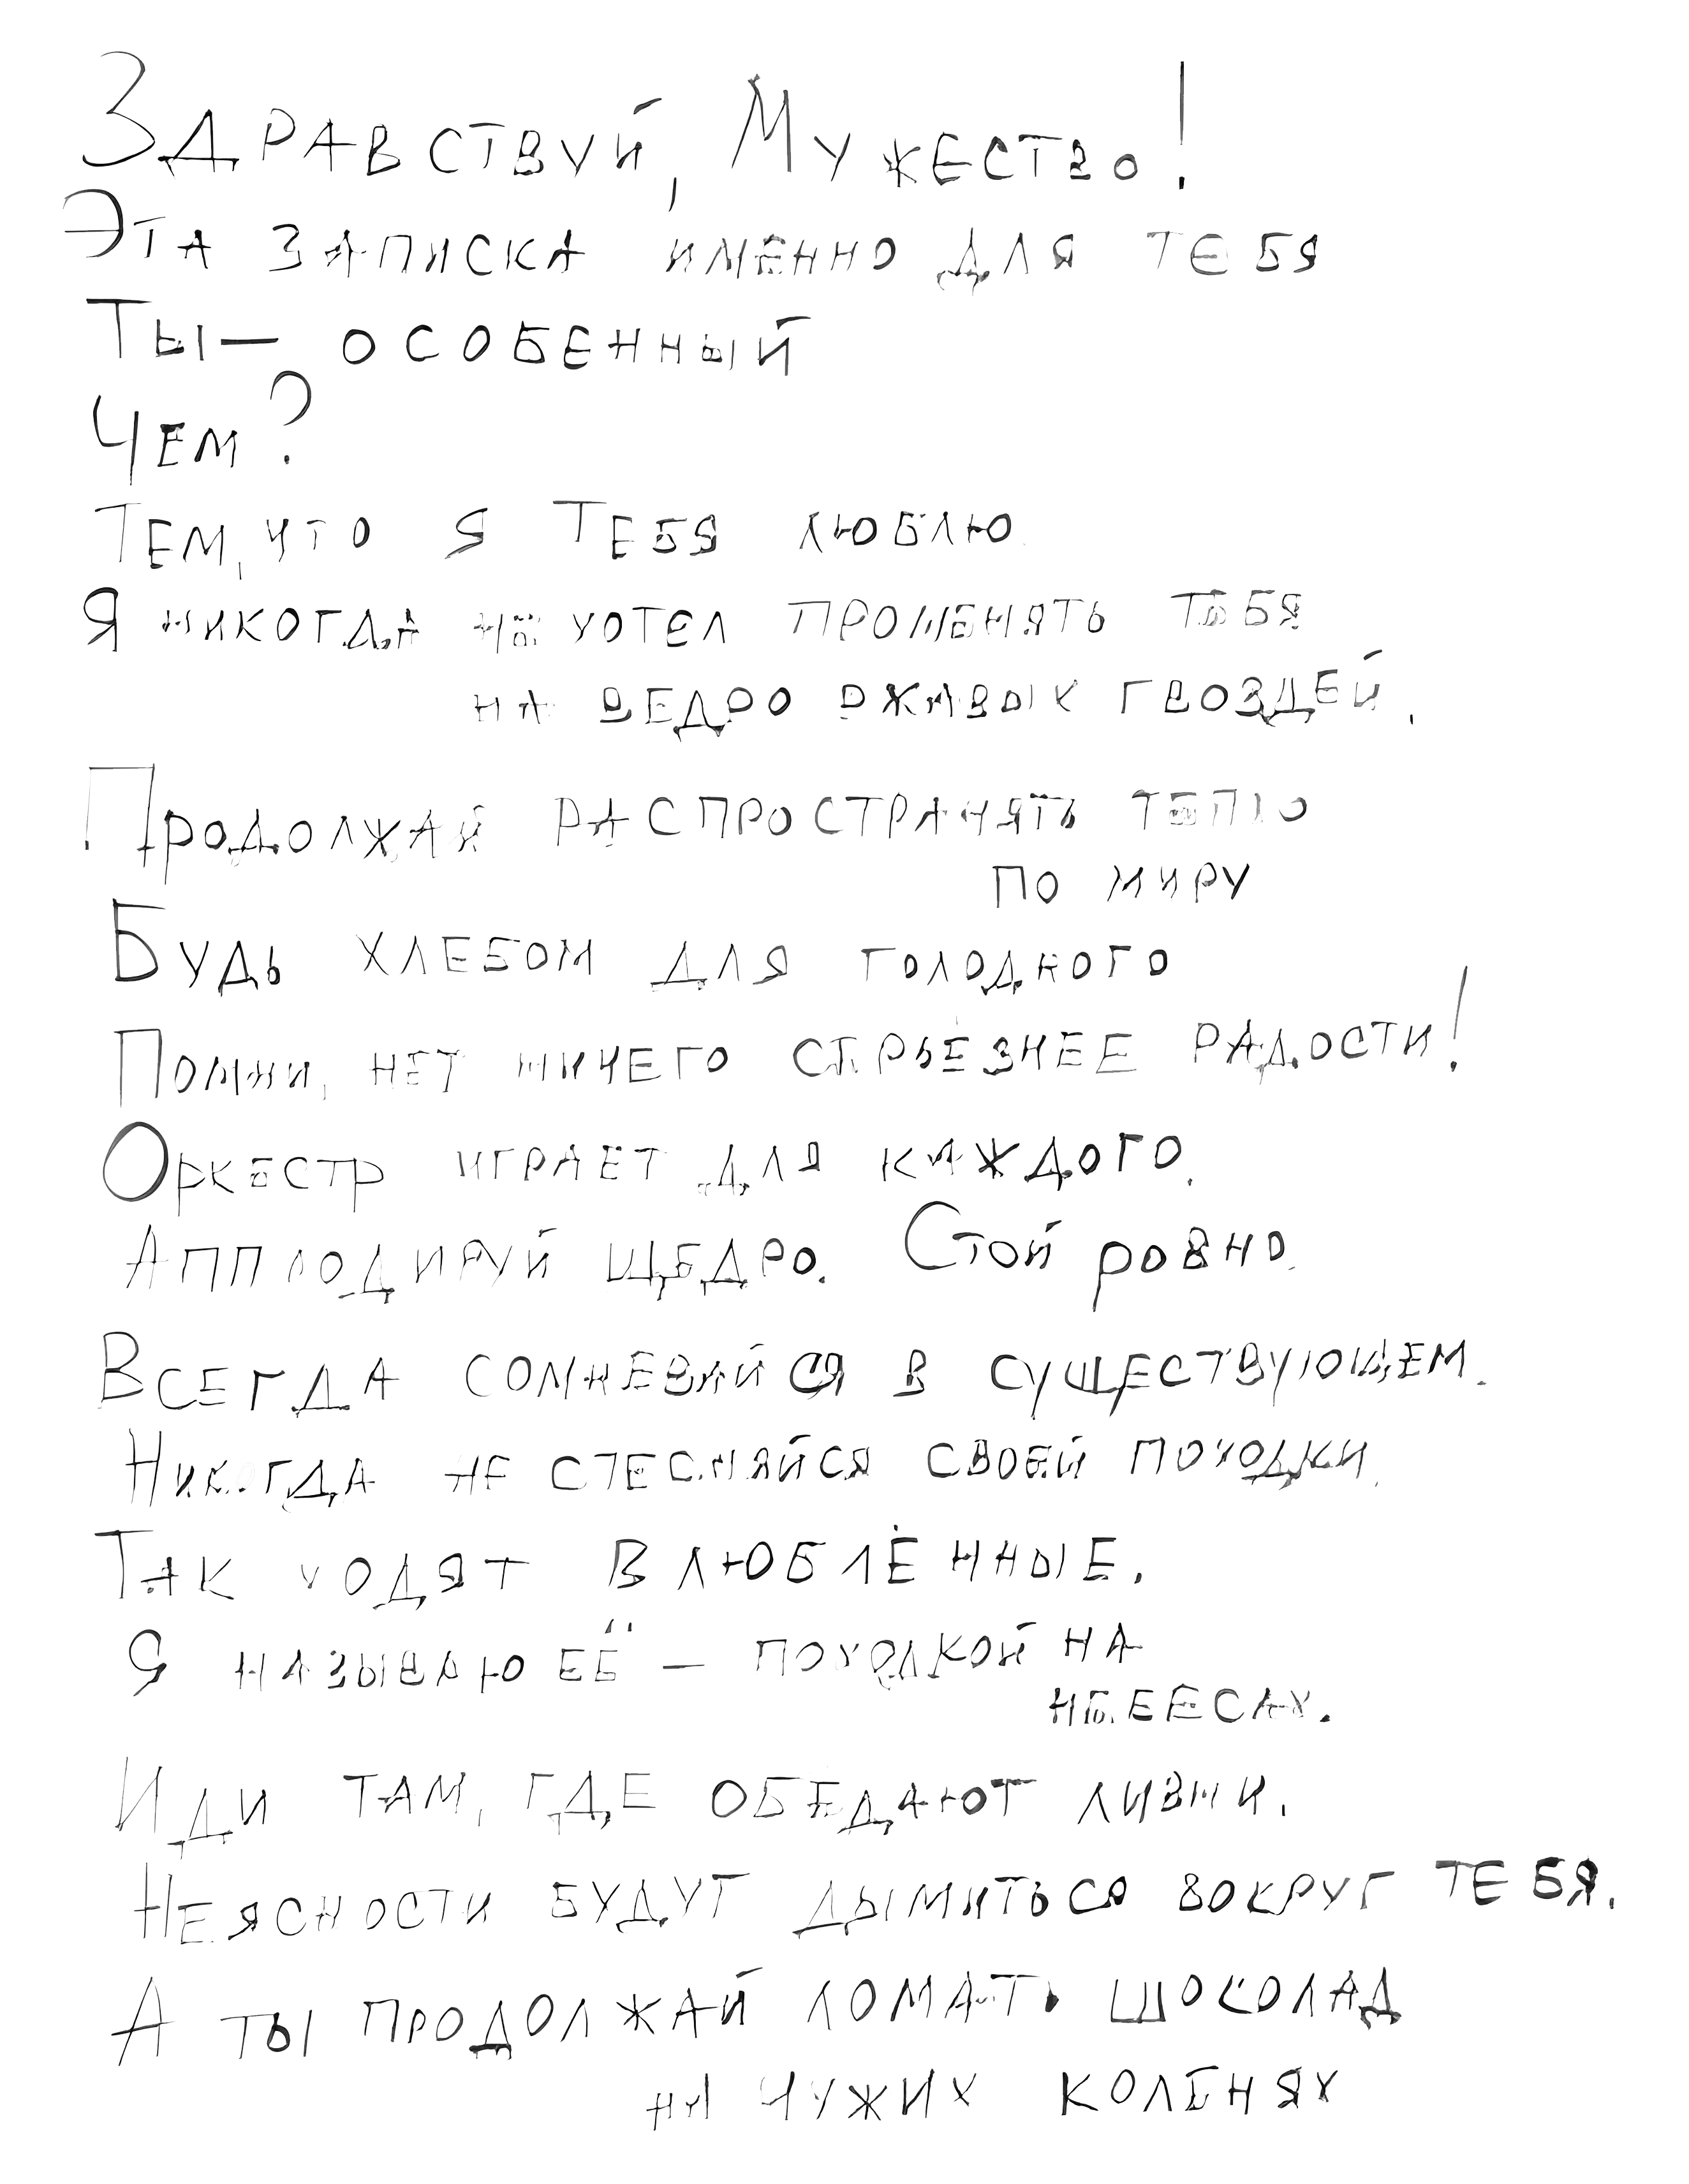 Здравствуй, Мужество!
Эта записка именно для тебя
Ты — особенный
Чем?
Тем, что я тебя люблю
Я никогда не хотел променять тебя
на ведро ржавых гвоздей.
Продолжай распространять тепло
по миру
Будь хлебом для голодного
Помни, нет ничего стрьезнее радости!
Оркестр играет для каждого.
Апплодируй щедро. Стой ровно.
Всегда сомневайся в существующем.
Никогда не стесняйся своей походки.
Так ходят влюблённые.
Я называю её — походкой на
небеесах.
Иди там, где обедают ливни.
Неясности будут дымиться вокруг тебя.
А ты продолжай ломать шоколад
на чужих коленях